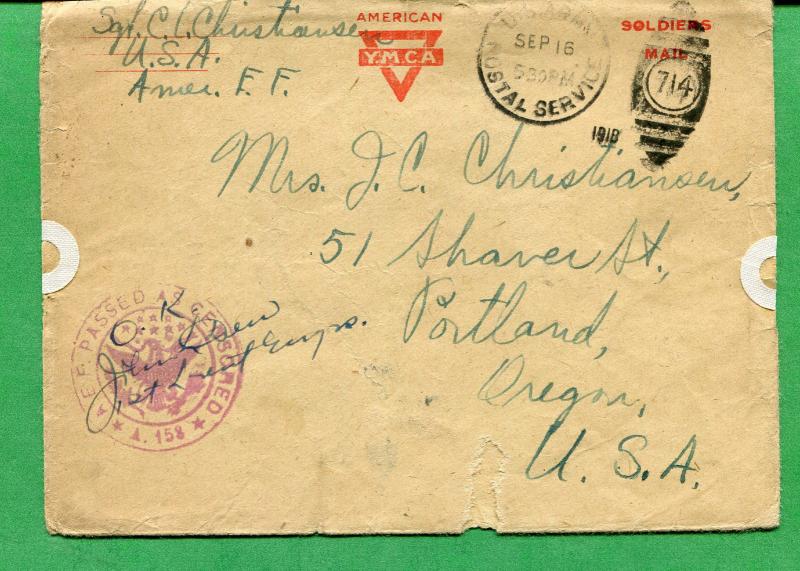 Sgt. C. L. Christiansen
U.S.A.
Amer. E. F.
AMERICAN
Y.M.C.A.
U.S. ARMY
POSTAL SERVICE
SEP 16
530PM
1918
SOLDIERS
MAIL
714
Mrs. J. C. Christiansen,
51 Shaver St.,
Portland,
Oregon,
U. S. A.
A.E.F. PASSED AS CENSORED
A. 158
O. K.
John
1st Lieut Engrs.